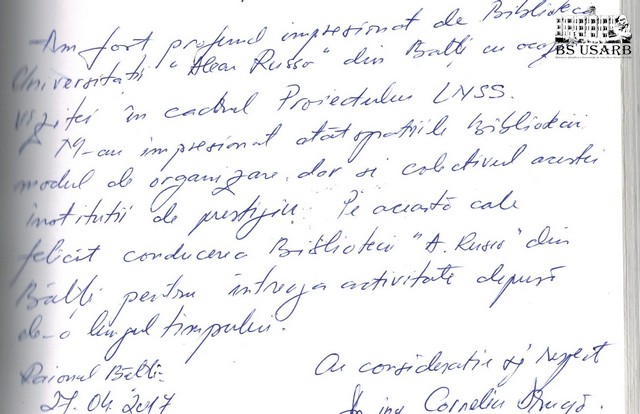 Am fost profund impresionat de Biblioteca
Universității "Alecu Russo" din Bălți cu ocaz
vizitei în cadrul Proiectului LNSS.
M-au impresionat atât spațiile Bibliotecii
modul de organizare, dar și colectivul acestei
instituții de prestigiu. Pe această cale
felicit conducerea Bibliotecii "A. Russo" din
Bălți pentru întreaga activitate depusă
de-a lungul timpului.
Cu considerație și respect
Raionul Bălți
27.04.2017
ing. Corneliu
BS USARB